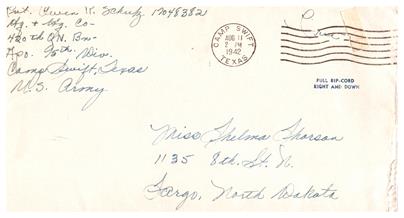 Pvt. Owen W. Schultz 17048382
Hq. & Hq. Co-
420th Q.N. Bn-
Apo. 95th Div.
Camp Swift, Texas
U.S. Army.
Free
CAMP SWIFT
AUG 11
2 PM
1942
TEXAS
PULL RIP-CORD
RIGHT AND DOWN
Miss Thelma Thorson
1135 8th. St. N.
Fargo, North Dakota